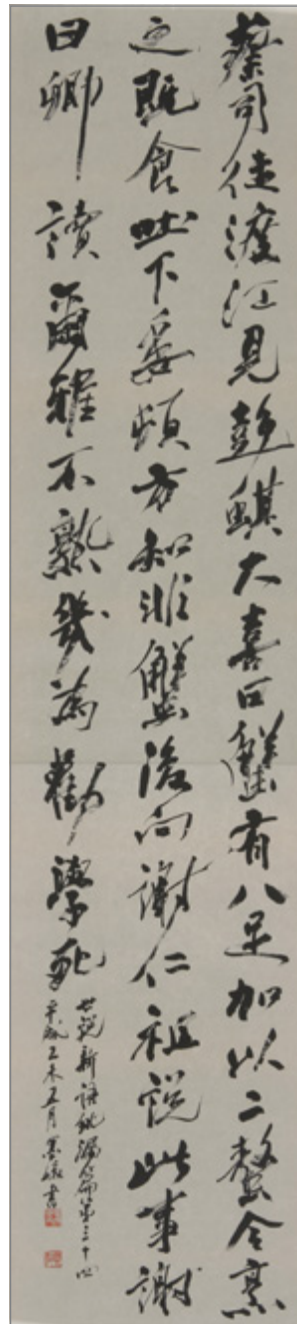 蔡司徒渡江見彭蜞大喜曰蟹有八足加以二螯令烹
之既食吐下委頓方知非蟹後向謝仁祖說此事謝
曰卿讀爾雅不熟幾為勸學死
世說新語紕漏篇第三十四
乙未五月書